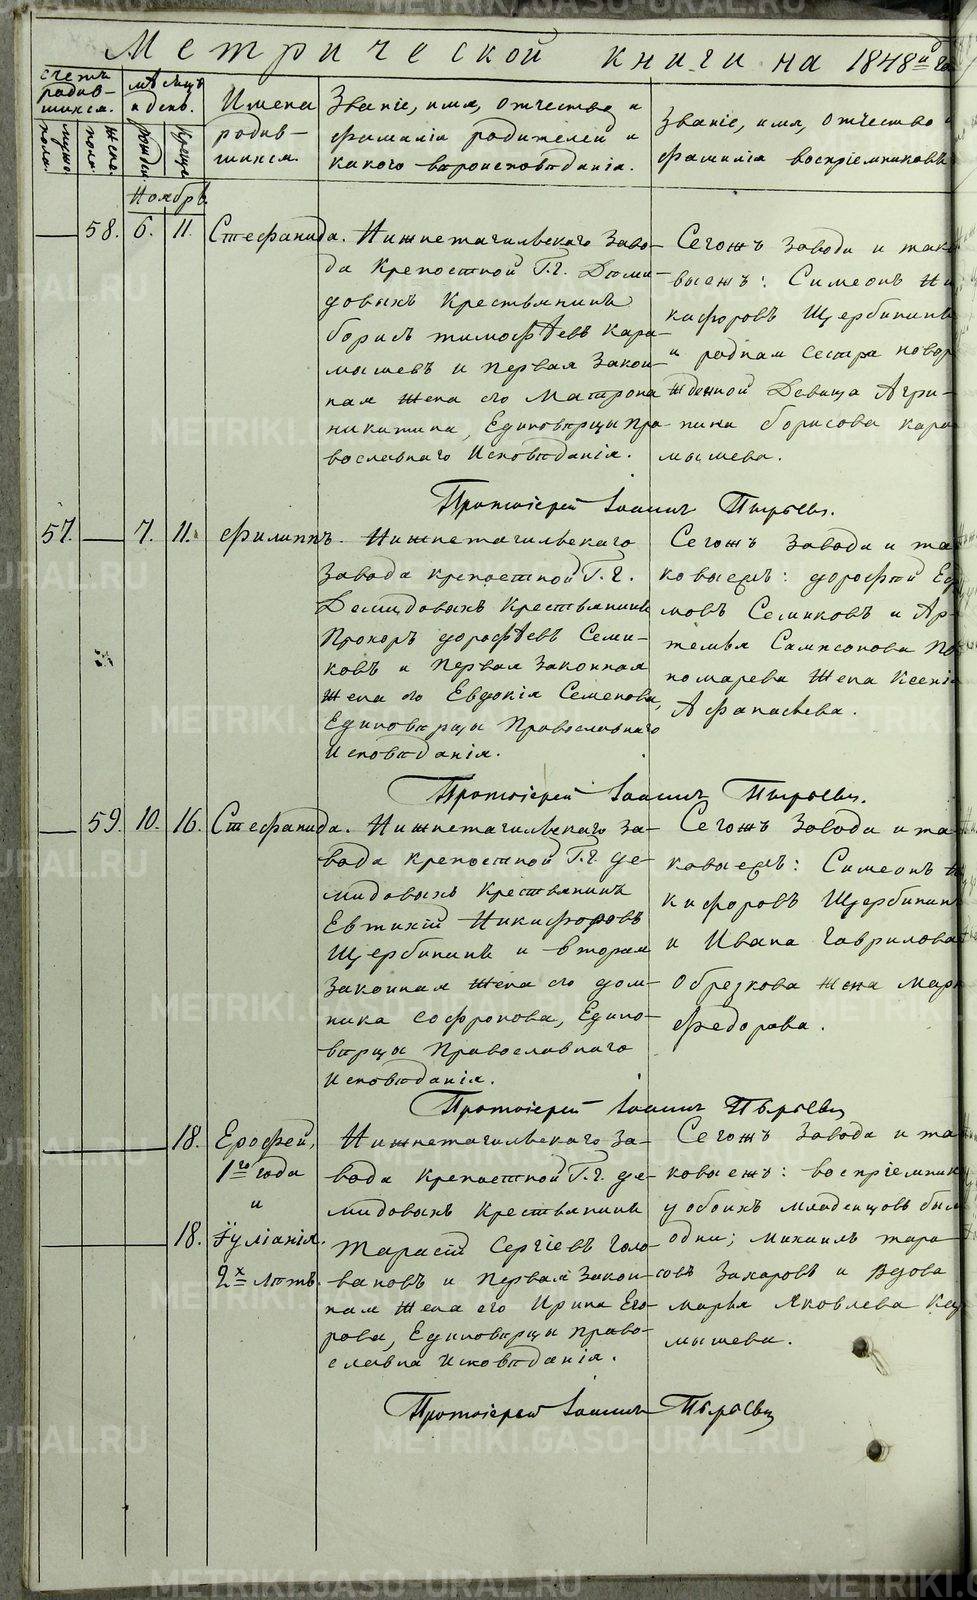 Метрической книги на 1848й го
счетъ родив-шихся.
мѣсяцъ и день.
Имена родив-шихся.
Званіе, имя, отчество и фамилія родителей и какого вѣроисповѣданія.
Званіе, имя, отчество и фамилія воспріемниковъ
мужс. пола.
женс. пола.
рожден.
крещен.
Ноябрь.
58. 6. 11. Стефанида.
Нижнетагильскаго Заво-
да крепостной Г.г. Деми-
довыхъ Крестьянинъ
борисъ тимофѣевъ кара-
мышевъ и первая закон-
ная жена его Матрона
никитина, Единовѣрцы пра-
вославнаго Исповѣданія.
Сегожъ завода и тако
выежъ: Симеонъ Ни
кифоровъ Щербининъ
и родная сестра новоро
жденной Девица Агри-
пина борисова кара
мышева.
Протоіерей Іоаннъ Пырьевъ.
57. 7. 11. Филиппъ.
Нижнетагильскаго
Завода крепостной Г.г.
Демидовыхъ Крестьянинъ
Прохоръ дорофѣевъ Семи-
ковъ и первая законная
жена его Евдокія Семенова,
Единовѣрцы Православнаго
Исповѣданія.
Сегожъ Завода и та
ковыежъ: дорофей Еф
мовъ Семиковъ и Ар-
темья Сампсонова По
номарева жена Ксенія
Афанасьева.
Протоіерей Іоаннъ Пырьевъ.
59. 10. 16. Стефанида.
Нижнетагильскаго за-
вода крепостной Г.г. де-
мидовыхъ крестьянинъ
Евтихій Никифоровъ
Щербининъ и вторая
законная жена его дом-
ника софронова, Едино-
вѣрцы Православнаго
Исповѣданія.
Сегожъ Завода и та-
ковыежъ: Симеонъ Н
кифоровъ Щербинин
и Ивана Гаврилова
Обрезкова жена Мар
федорова.
Протоіерей Іоаннъ Пырьевъ
18. Ерофей,
1го года
и
18. Іуліанія.
2хъ лѣтъ.
Нижнетагильскаго за-
вода крепостной Г.г. де-
мидовыхъ Крестьянинъ
Тарасій Сергіевъ Голо-
вановъ и первая закон-
ная жена его Ирина Его-
рова, Единовѣрцы право-
славна Исповѣданія.
Сегожъ Завода и та
ковыежъ: воспріемник
у обоихъ младенцовъ был
одни; михаилъ тара-
совъ Захаровъ и вдова
марья Яковлева Кар
мышева.
Протоіерей Іоаннъ Пырьевъ
METRIKI.GASO-URAL.RU